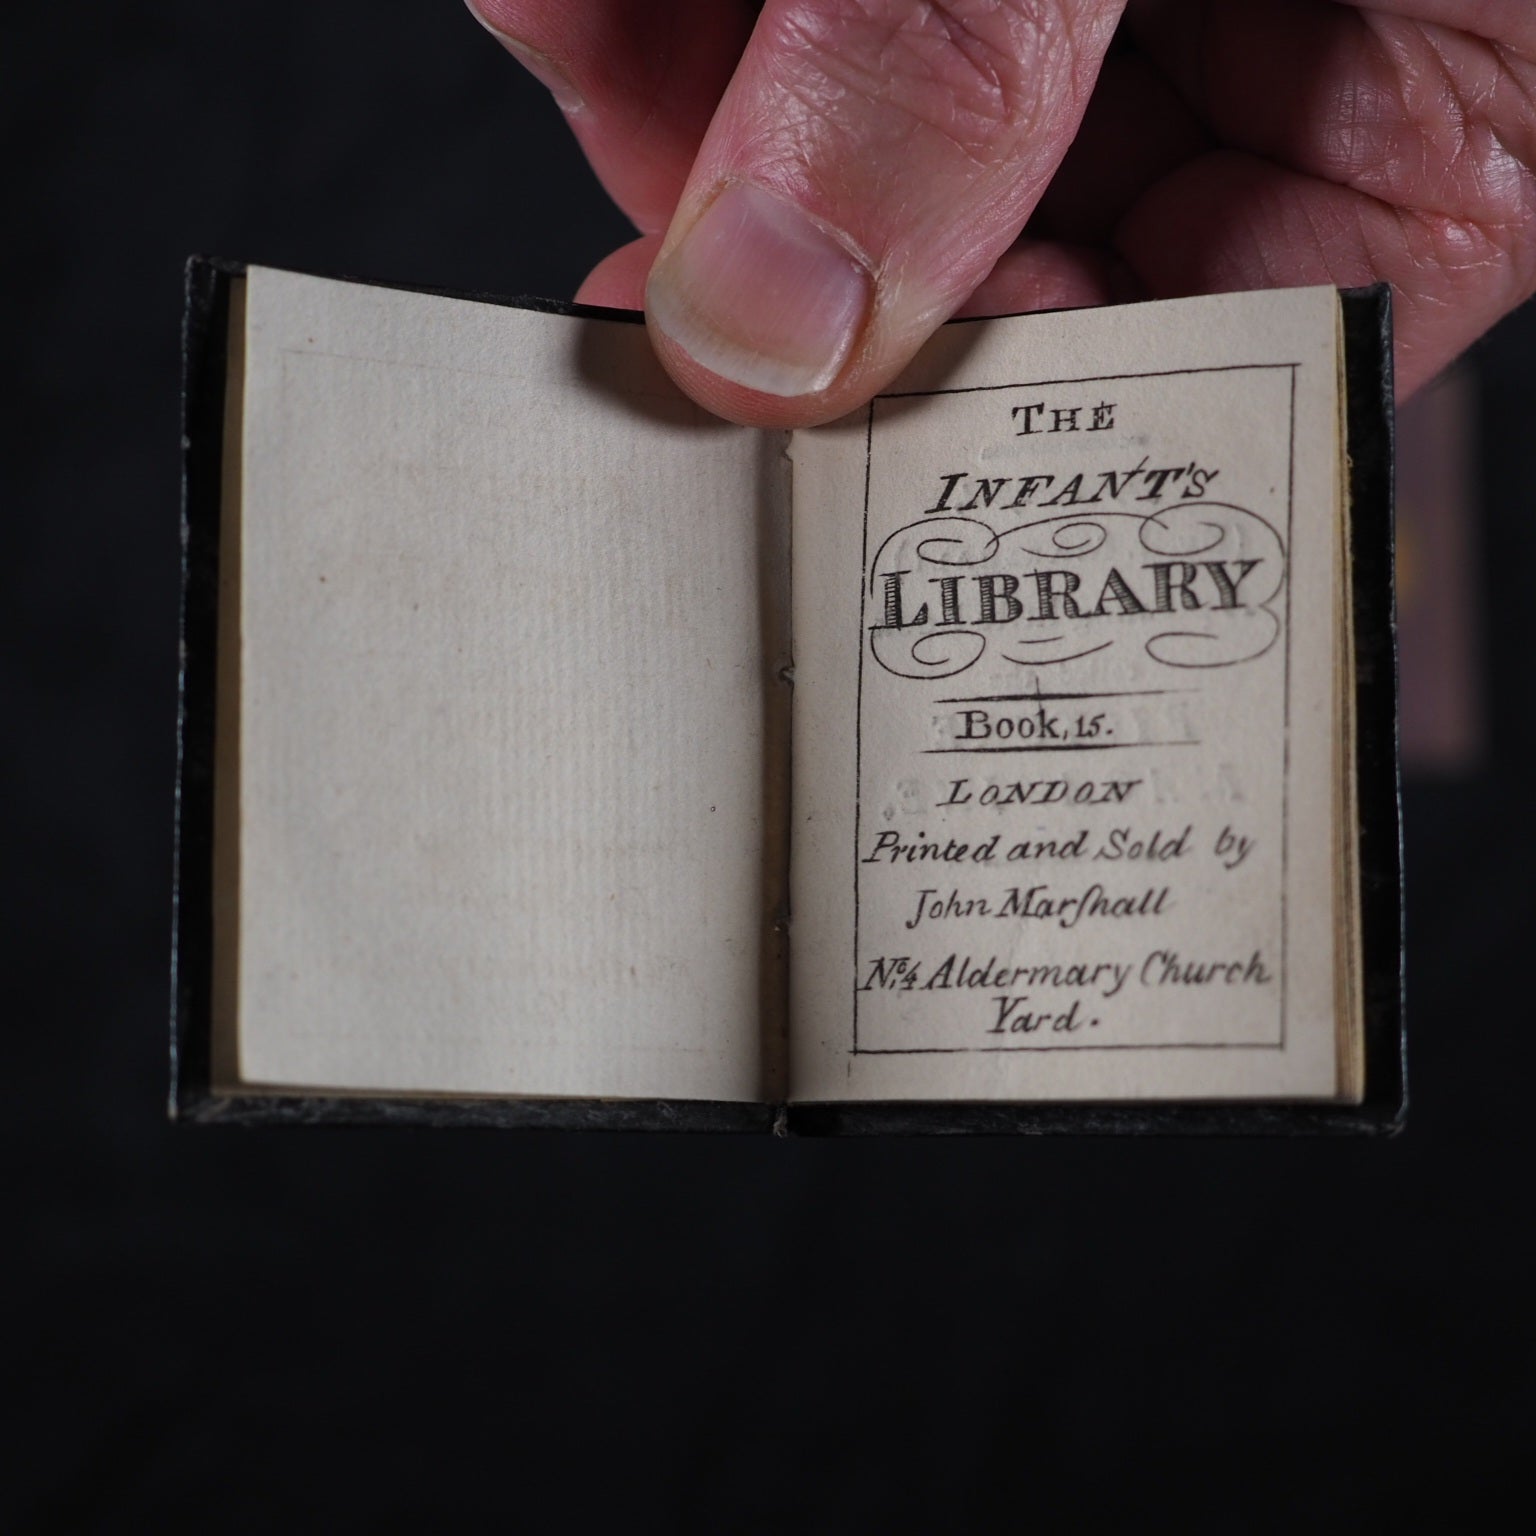 THE
INFANT'S
LIBRARY
Book, 15.
LONDON
Printed and Sold by
John Marſhall
No. 4 Aldermary Church
Yard.